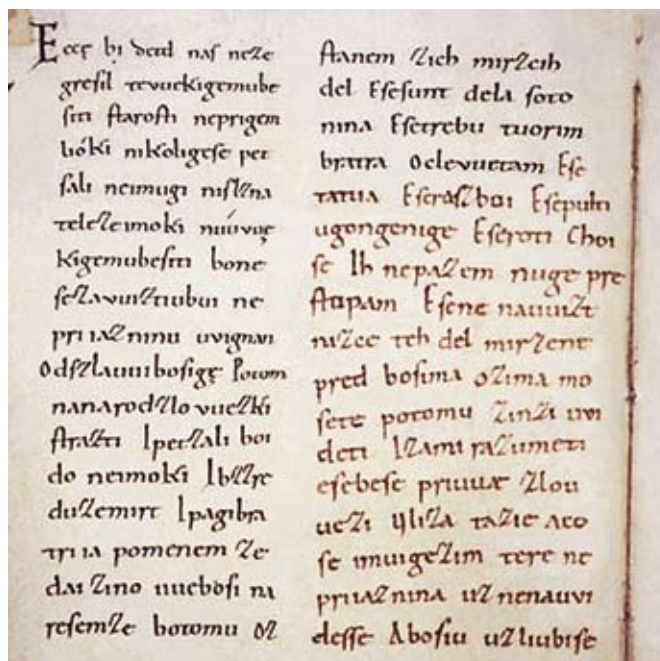 Eccę bi detd naſ neze
greſil tevuekigemube
ſiti ſtaroſti neprigem
lióki nikoligeſe pet
ſali neimugi niſlzna
telezeimoki niúvvoę
kigemubeſiti bone
ſezavuiztiubui ne
priiazninu uvignan
Odſzlauuiboſigę Potom
nanarodzlovuezki
ſtrazti Ipetzali boi
do neimoki Ibzzre
duzemirt Ipagibra
triia pomenem ze
dai zino uueboſi na
reſemze botomu oz
ſtanem zich mirzcih
del Eſeſunt dela ſoto
nina Eſetrebu tuorim
bratra Oclevuetam Eſe
tatua Eſeraſzboi Eſepulti
ugongenige Eſeroti Choi
ſe Ih nepazem nuge pre
ſtupam Eſene nauuizt
nizce teh del mirzene
pred boſima ozima mo
ſete potomu zinzi uvi
deti Izami razumeti
eſebeſe priuuæ zlou
uezi Uliza tazie aco
ſe imuigezim tere ne
priiaznina uz nenauvi
deſſe Aboſiu uzliubiſe